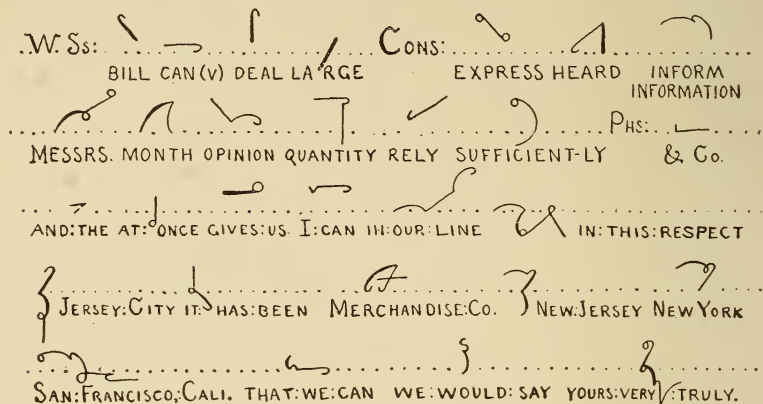 W. Ss: Cons:
BILL CAN (V) DEAL LARGE EXPRESS HEARD INFORM
INFORMATION
Phs:
MESSRS. MONTH OPINION QUANTITY RELY SUFFICIENT-LY & Co.
AND:THE AT:ONCE GIVES:US I:CAN IN:OUR:LINE IN:THIS:RESPECT
JERSEY:CITY IT:HAS:BEEN MERCHANDISE:Co. NEW:JERSEY NEW YORK
SAN:FRANCISCO,:CALI. THAT:WE:CAN WE:WOULD:SAY YOURS:VERY:TRULY.